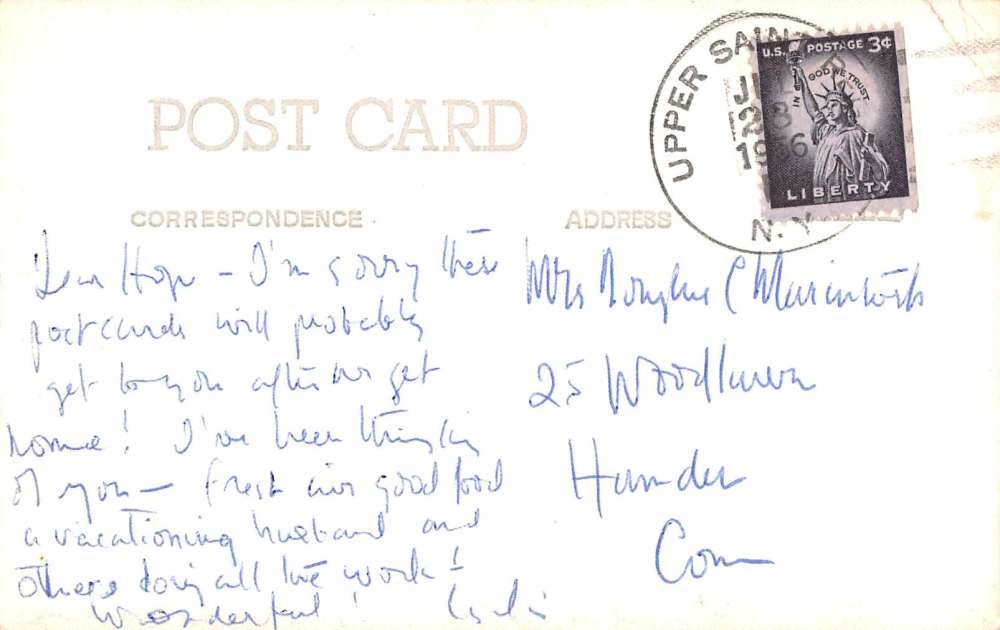 POST CARD
CORRESPONDENCE
ADDRESS
UPPER SAIN
JU
28
1956
N.Y
U.S. POSTAGE 3¢
IN GOD WE TRUST
LIBERTY
Dear Hope – I'm sorry these
postcards will probably
get to you after we get
home! I've been thinking
of you – fresh air good food
a vacationing husband and
others doing all the work!
Wonderful!
Mrs Douglas C Macintosh
25 Woodlawn
Hamden
Conn